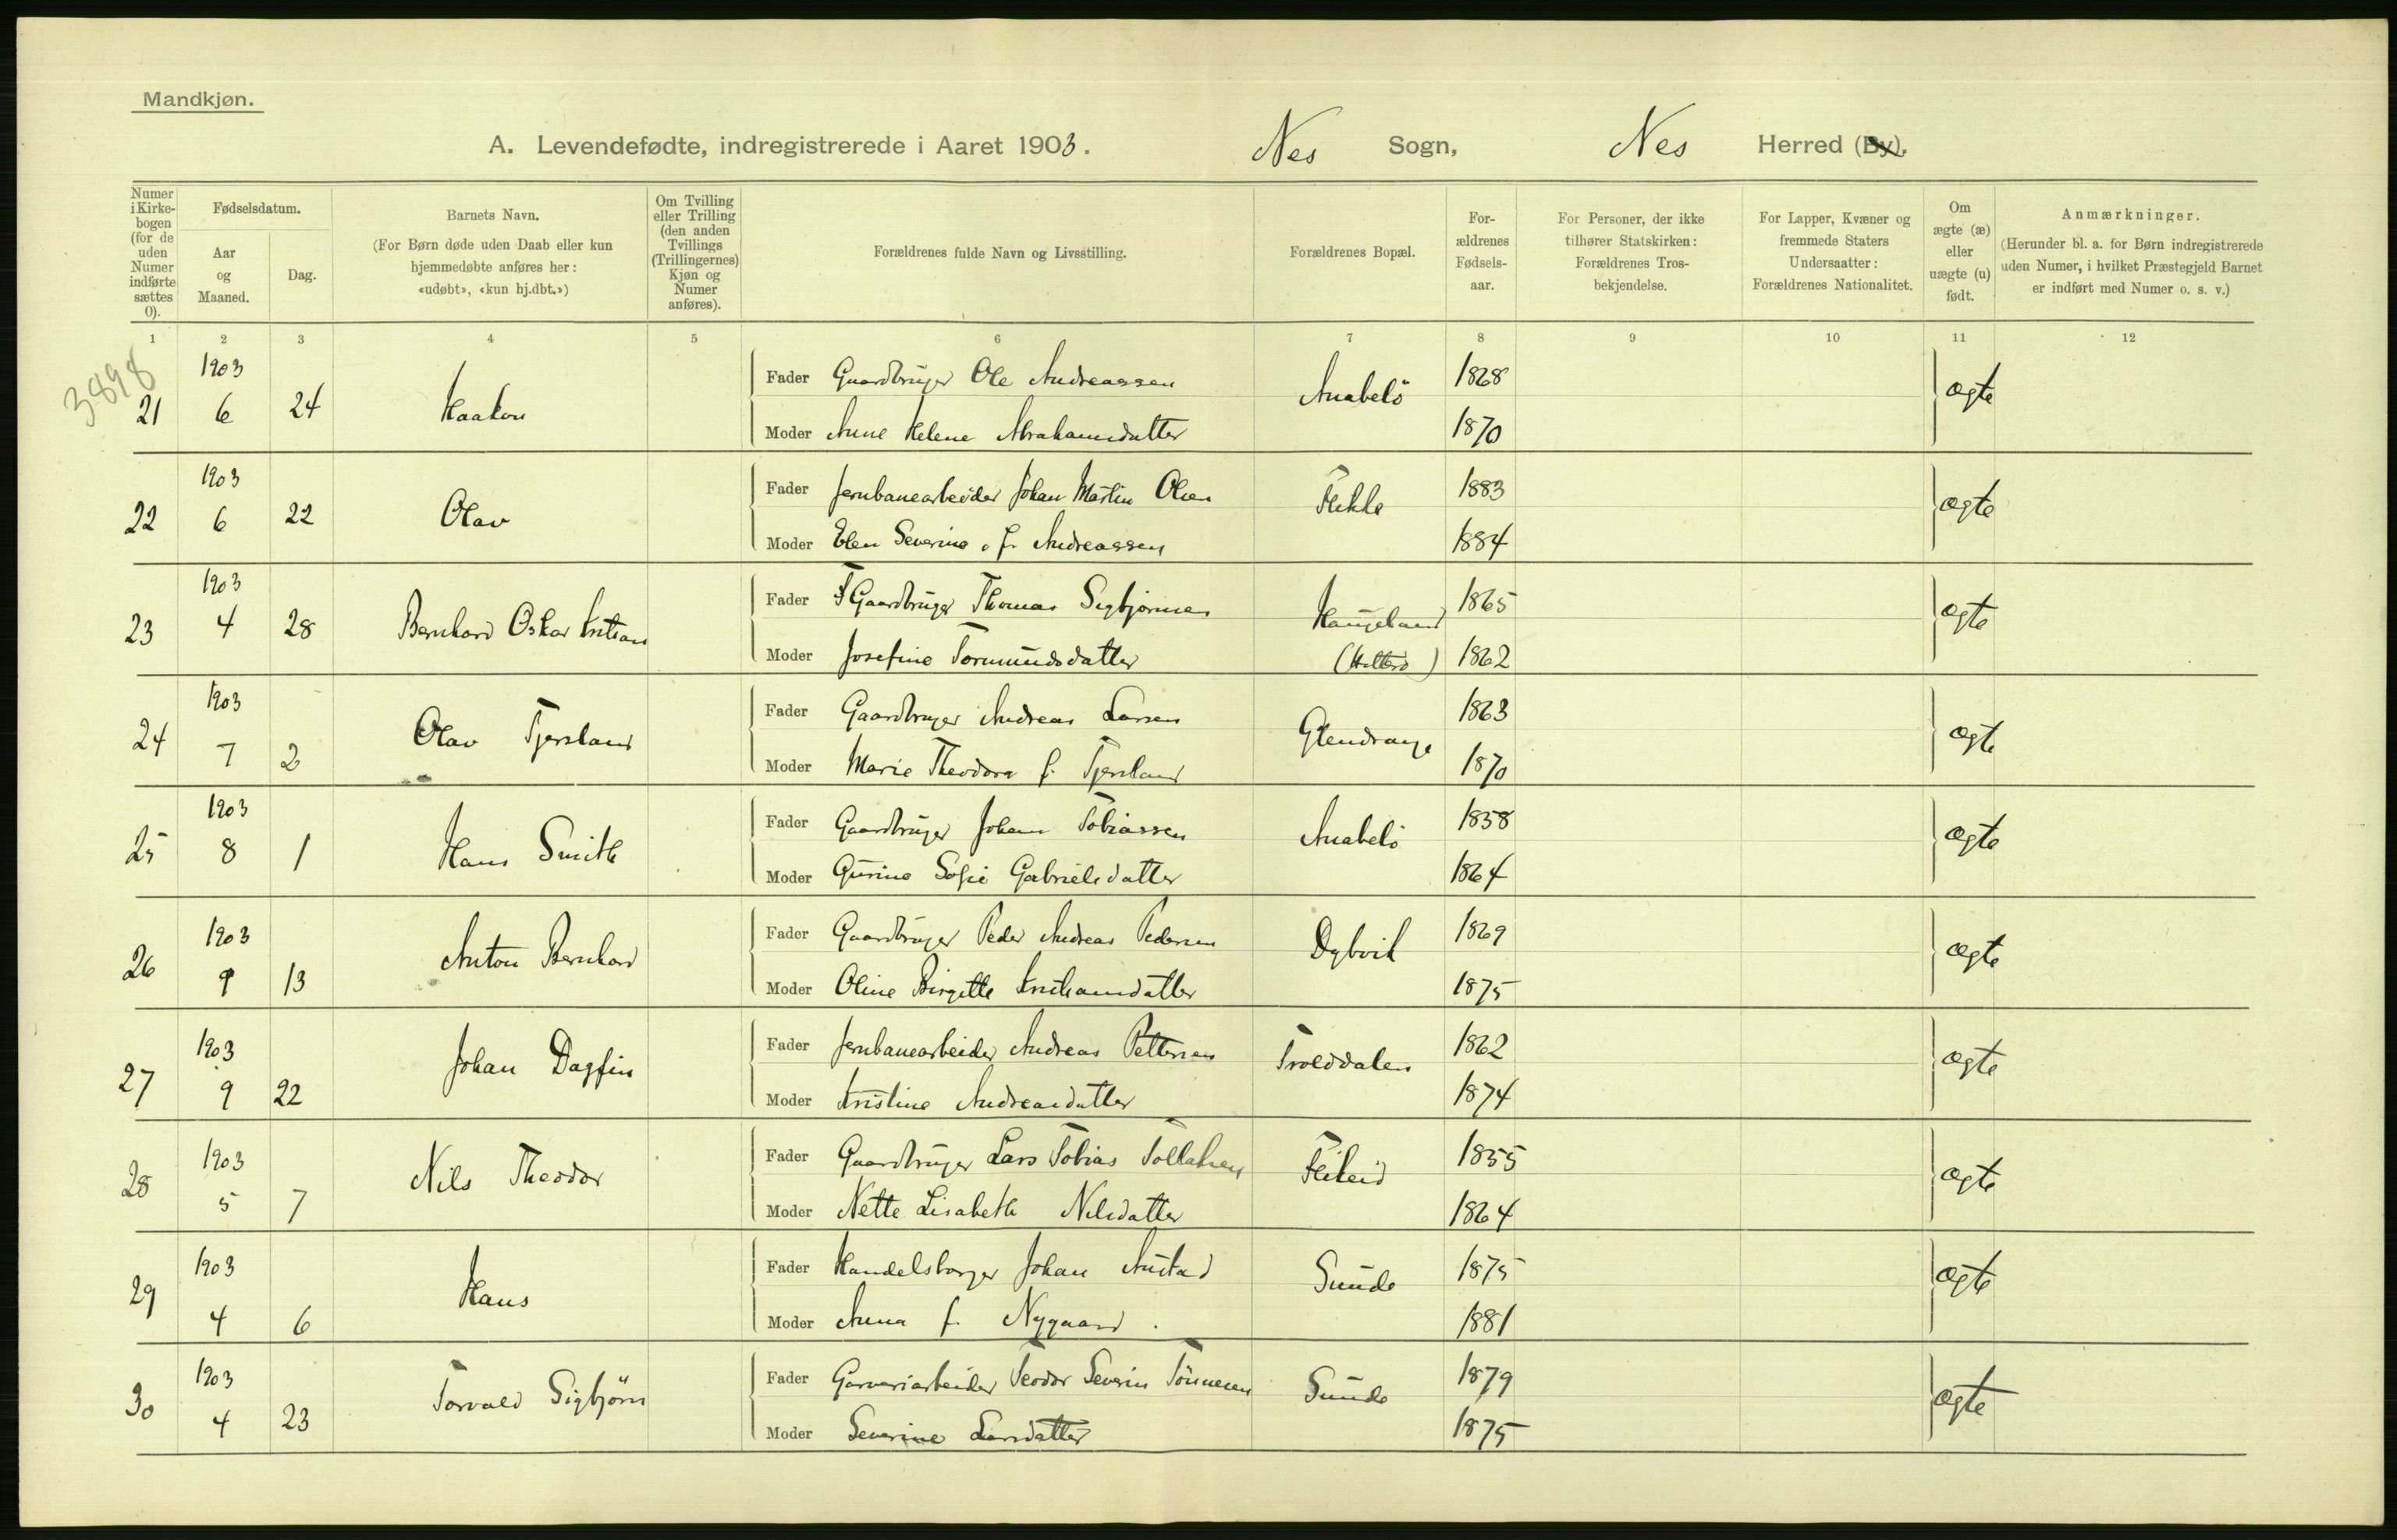 Mandkjøn.
A. Levendefødte, indregistrerede i Aaret 1903. Nes Sogn, Nes Herred (By).
Numer i Kirke-bogen (for de uden Numer indførte sættes 0).
Fødselsdatum.
Aar og Maaned.
Dag.
Barnets Navn.
(For Børn døde uden Daab eller kun hjemmedøbte anføres her: «udøbt», «kun hj.dbt.»)
Om Tvilling eller Trilling (den anden Tvillings (Trillingernes) Kjøn og Numer anføres).
Forældrenes fulde Navn og Livsstilling.
Forældrenes Bopæl.
For-ældrenes Fødsels-aar.
For Personer, der ikke tilhører Statskirken: Forældrenes Tros-bekjendelse.
For Lapper, Kvæner og fremmede Staters Undersaatter: Forældrenes Nationalitet.
Om ægte (æ) eller uægte (u) født.
Anmærkninger.
(Herunder bl. a. for Børn indregistrerede uden Numer, i hvilket Præstegjeld Barnet er indført med Numer o. s. v.)
1 2 3 4 5 6 7 8 9 10 11 12
3898
21 1903 6 24 Haakon Fader Gaardbruger Ole Andreassen Anabelö 1868 ægte
Moder Anne Helene Abrahamsdatter 1870
22 1903 6 22 Olav Fader Jernbanearbeider Johan Martin Olsen Flikke 1883 ægte
Moder Elen Severine f. Andreassen 1884
23 1903 4 28 Bernhard Oskar Kristian Fader Gaardbruger Thomas Sigbjørnsen Haugeland 1865 ægte
Moder Josefine Tormundsdatter (Hitterö) 1862
24 1903 7 2 Olav Tjersland Fader Gaardbruger Andreas Larsen Glendrange 1863 ægte
Moder Marie Theodora f. Tjersland 1870
25 1903 8 1 Hans Smith Fader Gaardbruger Johan Tobiassen Anabelö 1858 ægte
Moder Gurine Sofie Gabrielsdatter 1864
26 1903 9 13 Anton Bernhard Fader Gaardbruger Peder Andreas Pedersen Dybvik 1869 ægte
Moder Oline Birgitte Kristiansdatter 1875
27 1903 9 22 Johan Dagfin Fader Jernbanearbeider Andreas Pettersen Trolddalen 1862 ægte
Moder Kristine Andreasdatter 1874
28 1903 5 7 Nils Theodor Fader Gaardbruger Lars Tobias Tollaksen Fleikeid 1855 ægte
Moder Nette Lisabeth Nilsdatter 1864
29 1903 4 6 Hans Fader Handelsborger Johan Austad Sunde 1875 ægte
Moder Anna f. Nygaard. 1881
30 1903 4 23 Torvald Sigbjörn Fader Garveriarbeider Teodor Severin Tönnesen Sunde 1879 ægte
Moder Severine Larsdatter 1875